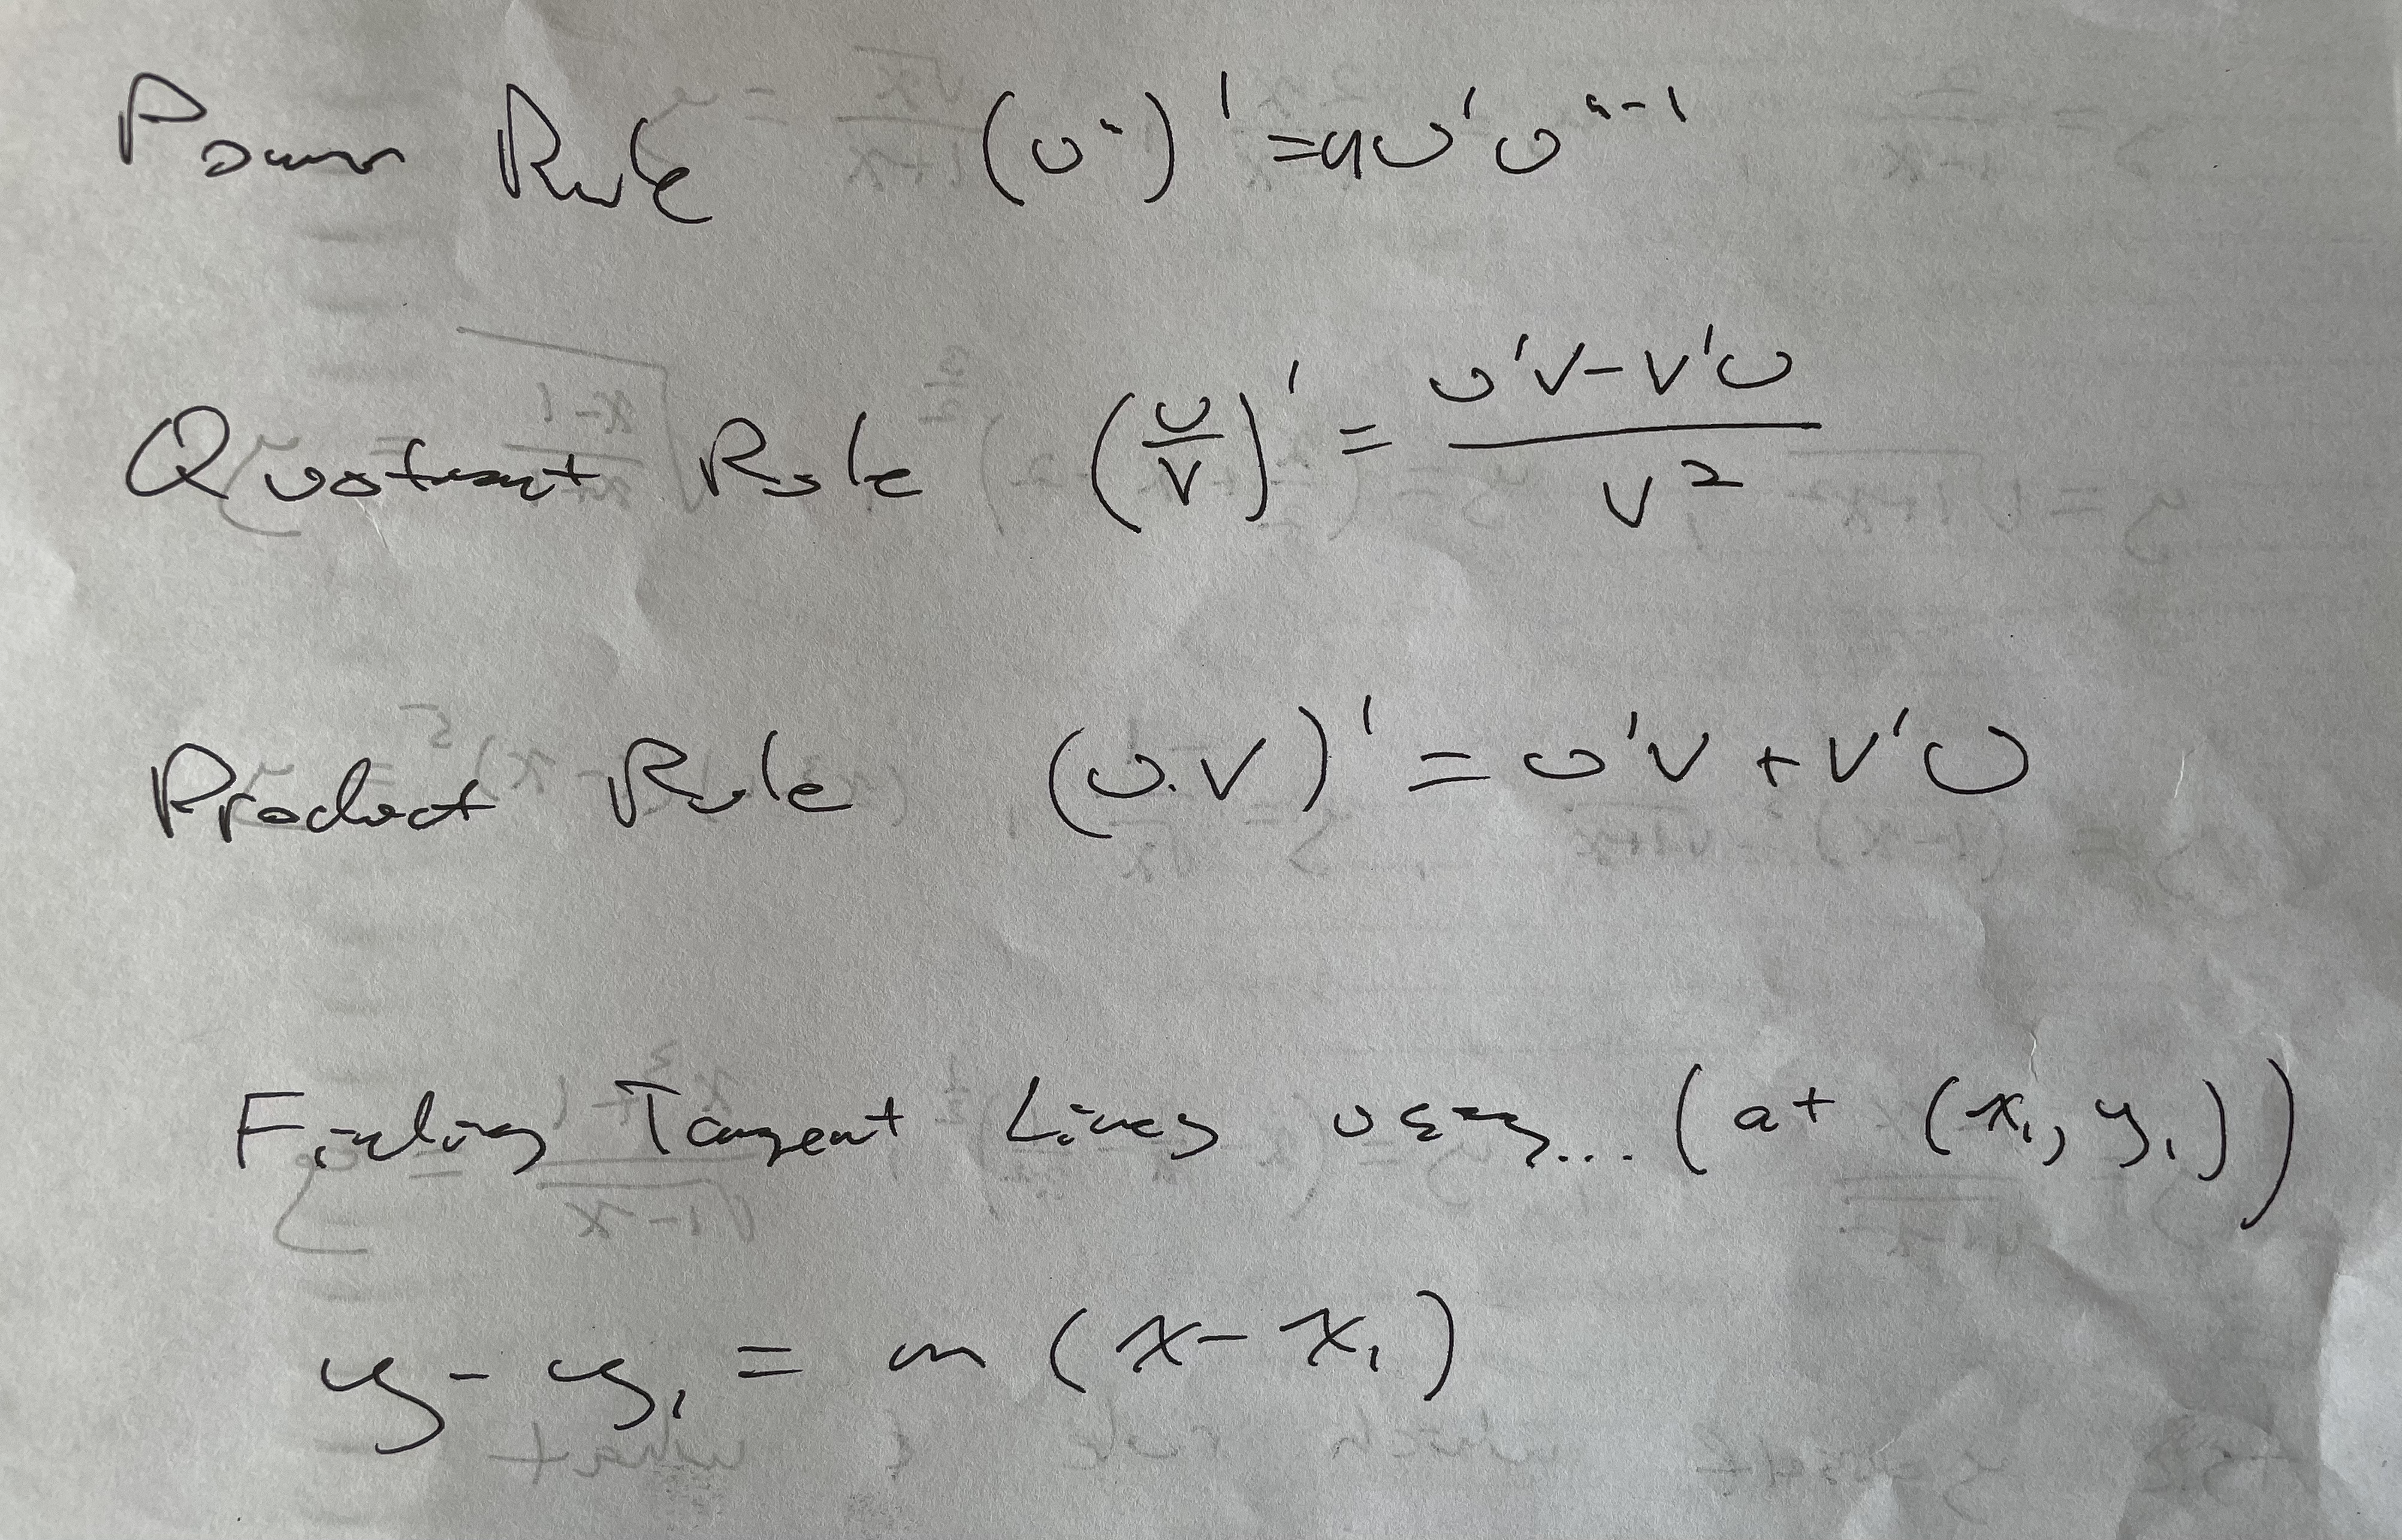 Power Rule (u^n)' = nu'u^n-1
Quotient Rule (u/v)' = u'v-v'u / v^2
Product Rule (u.v)' = u'v + v'u
Finding Tangent Lines using... (at (x₁, y₁))
y - y₁ = m (x - x₁)